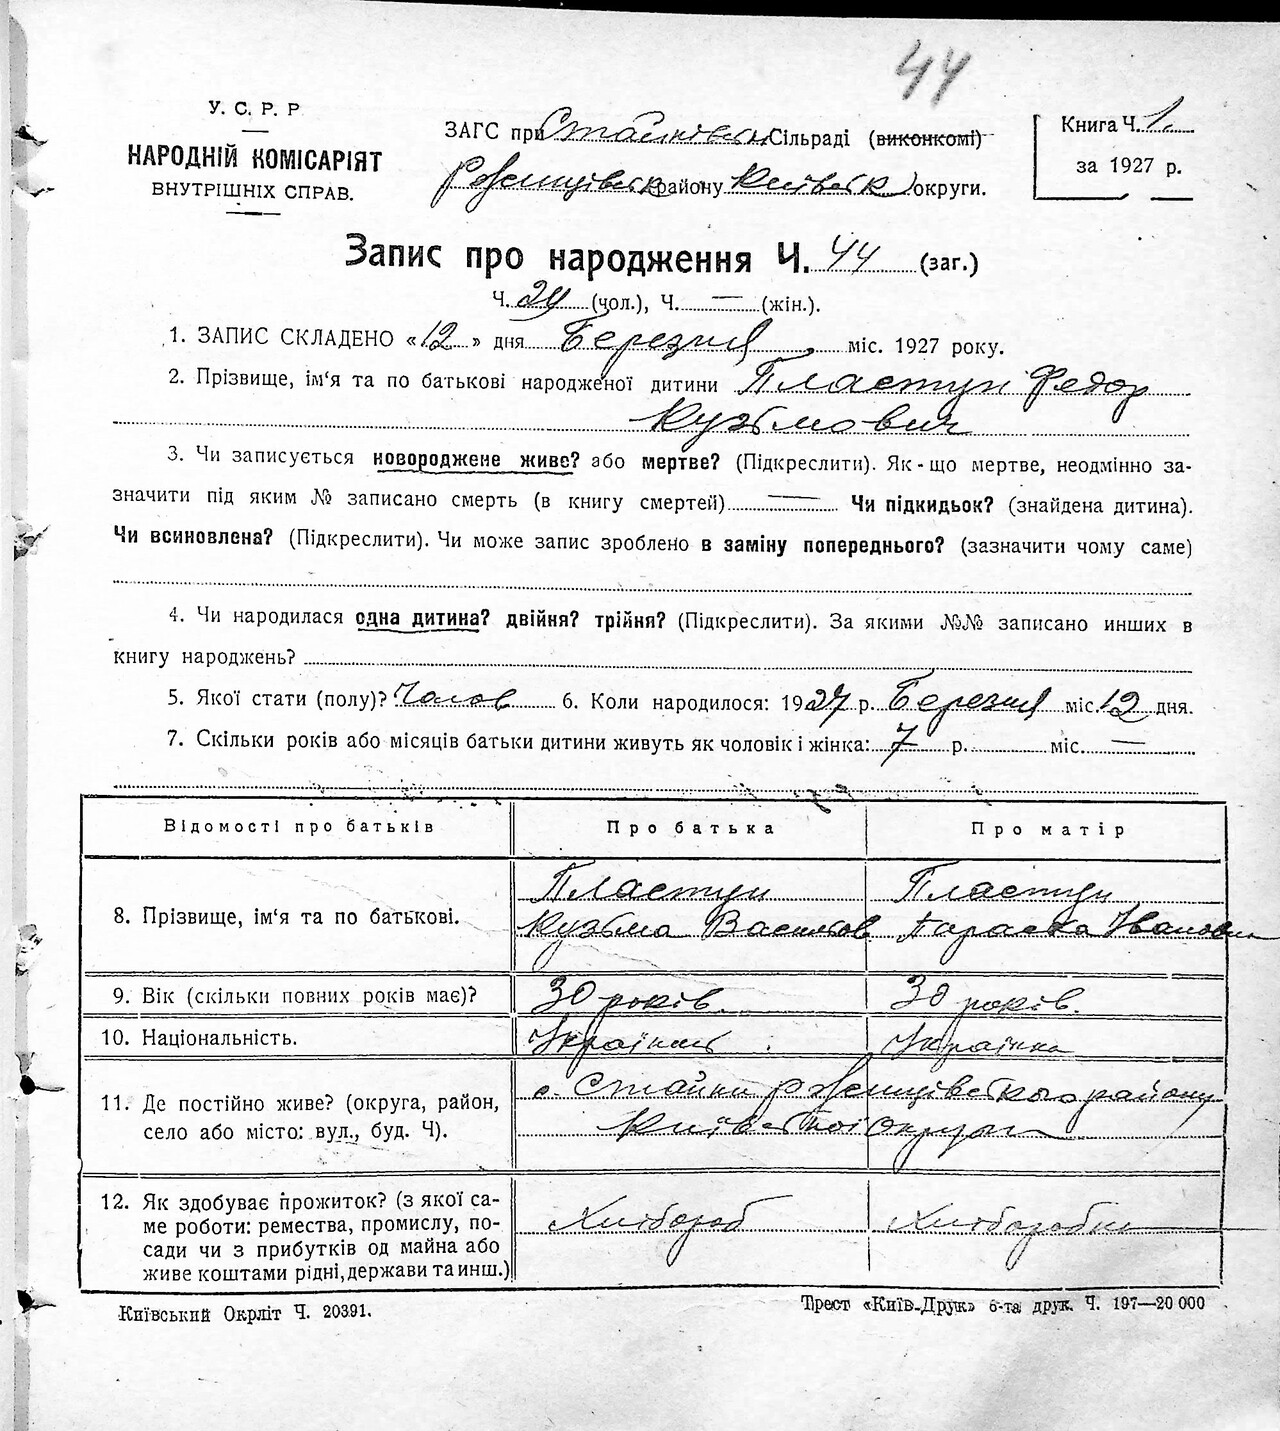 44
У. С. Р. Р
НАРОДНІЙ КОМІСАРІЯТ
ВНУТРІШНІХ СПРАВ.
ЗАГС при Стайківськ Сільраді (виконкомі)
Ржищівськ району Київськ округи.
Книга Ч. 1.
за 1927 р.
Запис про народження Ч. 44 (заг.)
Ч. 24 (чол.), Ч. — (жін.).
1. ЗАПИС СКЛАДЕНО «12» дня Березня міс. 1927 року.
2. Прізвище, ім'я та по батькові народженої дитини Пластун Федор
Кузьмович
3. Чи записується новороджене живе? або мертве? (Підкреслити). Як-що мертве, неодмінно за-
значити під яким № записано смерть (в книгу смертей) — Чи підкидьок? (знайдена дитина).
Чи всиновлена? (Підкреслити). Чи може запис зроблено в заміну попереднього? (зазначити чому саме)
4. Чи народилася одна дитина? двійня? трійня? (Підкреслити). За якими №№ записано инших в
книгу народжень?
5. Якої стати (полу)? Чолов 6. Коли народилося: 1927 р. Березня міс. 12 дня.
7. Скільки років або місяців батьки дитини живуть як чоловік і жінка: 7 р. міс. —
Відомості про батьків Про батька Про матір
8. Прізвище, ім'я та по батькові.
Пластун
Кузьма Васильов
Пластун
Параска Іванов
9. Вік (скільки повних років має)? 30 років. 30 років.
10. Національність. Українець Українка
11. Де постійно живе? (округа, район,
село або місто: вул., буд. Ч).
с. Стайки Ржищівського району
Київської Округи
12. Як здобуває прожиток? (з якої са-
ме роботи: ремества, промислу, по-
сади чи з прибутків од майна або
живе коштами рідні, держави та инш.)
Хлібороб
Хліборобка
Київський Окрліт Ч. 20391.
Трест «Київ-Друк» 6-та друк. Ч. 197—20 000